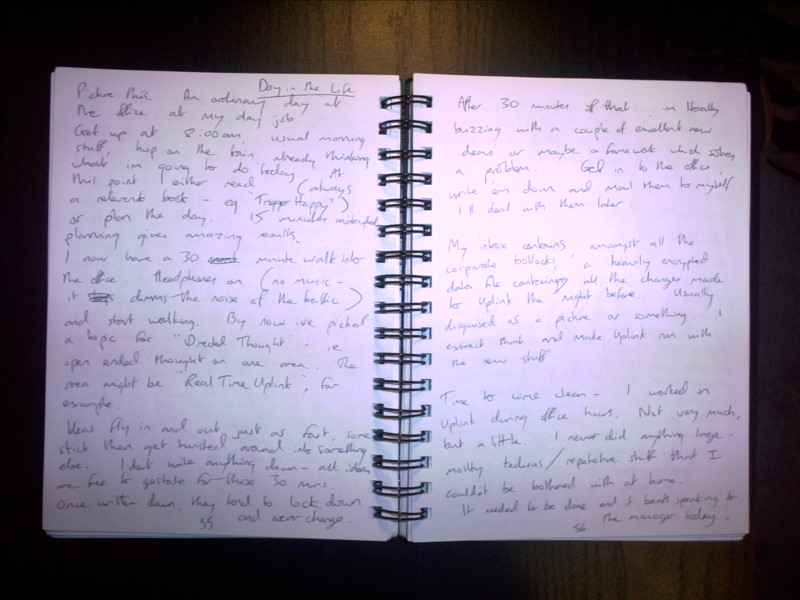 Day in the Life
Picture this. An ordinary day at
the office at my day job.
Get up at 8:00am, usual morning
stuff, hop on the train, already thinking
what im going to do today. At
this point I either read (always
a relevant book - eg "Trigger Happy")
or plan the day. 15 minutes
planning gives amazing results.
I now have a 30 minute walk into
the office. Headphones on (no music -
it dims the noise of the traffic)
and start walking. By now ive picked
a topic for "Directed Thought" - ie
open ended thought on one area. The
area might be "Real Time Uplink", for
example.
Ideas fly in and out just as fast, some
stick then get twisted around into something
else. I don't write anything down - all ideas
are free to gestate for those 30 mins.
Once written down, they tend to lock down
and never change.
55
After 30 minutes of that, im literally
buzzing with a couple of excellent new
ideas or maybe a framework which solves
a problem. Get in to the office,
write em down and mail them to myself
I'll deal with them later.
My inbox contains, amongst all the
corporate bollocks, a heavily encrypted
data file containing all the changes made
to Uplink the night before. Usually
disguised as a picture or something. I
extract that and make Uplink run with
the new stuff
Time to come clean - I worked on
Uplink during office hours. Not very much,
but a little. I never did anything large -
mostly tedious/repetetive stuff that I
couldn't be bothered with at home.
It needed to be done and it beats speaking to
the manager today.
56